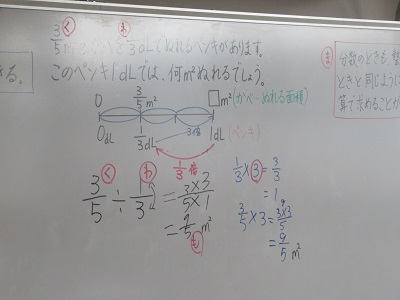 く わ
3/5 m²のかべを 1/3 dLでぬれるペンキがあります。
このペンキ1dLでは、何m²ぬれるでしょう。
0 3/5 m² □m²(かべ…ぬれる面積)
0dL 1/3 dL 3倍 1dL(ペンキ)
1/3倍
3/5 ÷ 1/3 = 3×3/5×1
く わ
= 9/5 m²
も
1/3 × 3 = 3/3
= 1
3/5 × 3 = 3×3/5
= 9/5 m²
ま
分数のときも、整
ときと同じように
算で求めることが
きる。